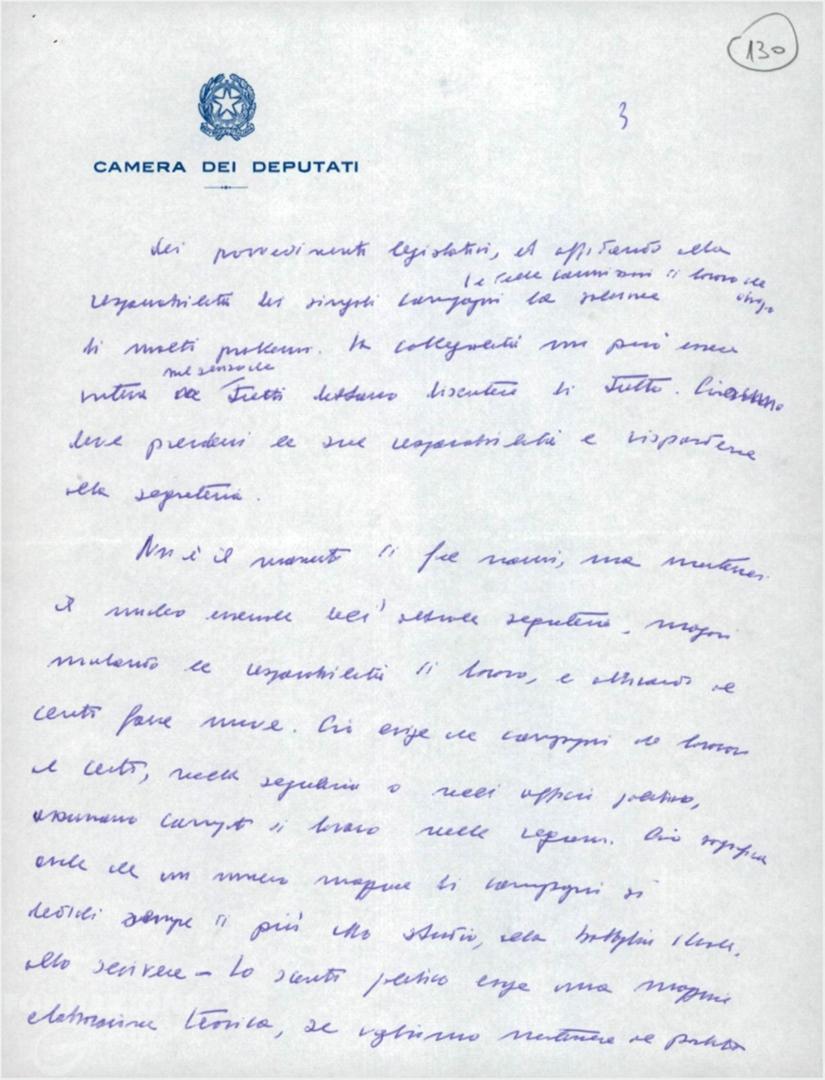 130
3
CAMERA DEI DEPUTATI
dei provvedimenti legislativi, ed affidando alla
e delle commissioni di lavoro che
responsabilità dei singoli compagni la soluzione
di molti problemi. La collegialità non può essere
nel senso che
intesa tutti debbano discutere di tutto. Ciascuno
deve prendersi le sue responsabilità e rispondere
alla segreteria.
Non è il momento di fare nomi, ma mantenersi
il nucleo essenziale dell'attuale segreteria, magari
mutando le responsabilità di lavoro, e attirando al
centro forze nuove. Ciò esige che compagni che lavorano
al centro, nella segreteria o nell'ufficio politico,
assumano compiti di lavoro nelle regioni. Ciò significa
anche che un numero maggiore di compagni si
dedichi sempre di più allo studio, alla battaglia ideale,
allo scrivere – Lo scontro politico esige una maggiore
elaborazione teorica, se vogliamo mantenere al partito